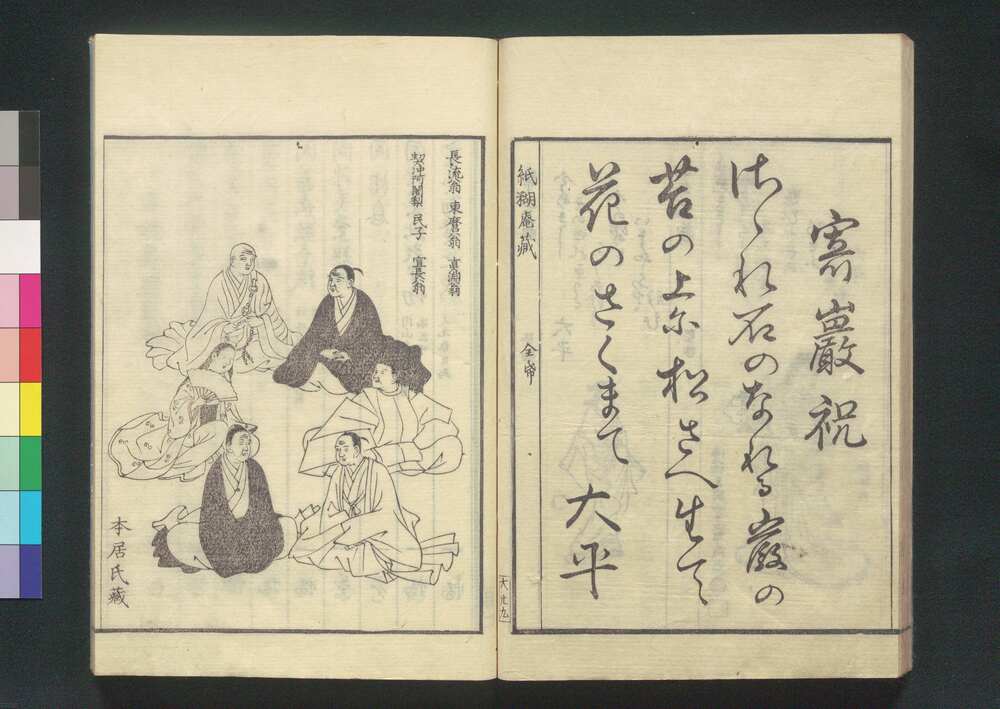 寄巌祝
さゝれ石のなれる巌の
苔の上に松さへ生て
花のさくまて 大平
紙糊庵藏
全帋
大尤九
長流翁 東麿翁 真淵翁
契沖阿闍梨 民子 宣長翁
本居氏藏